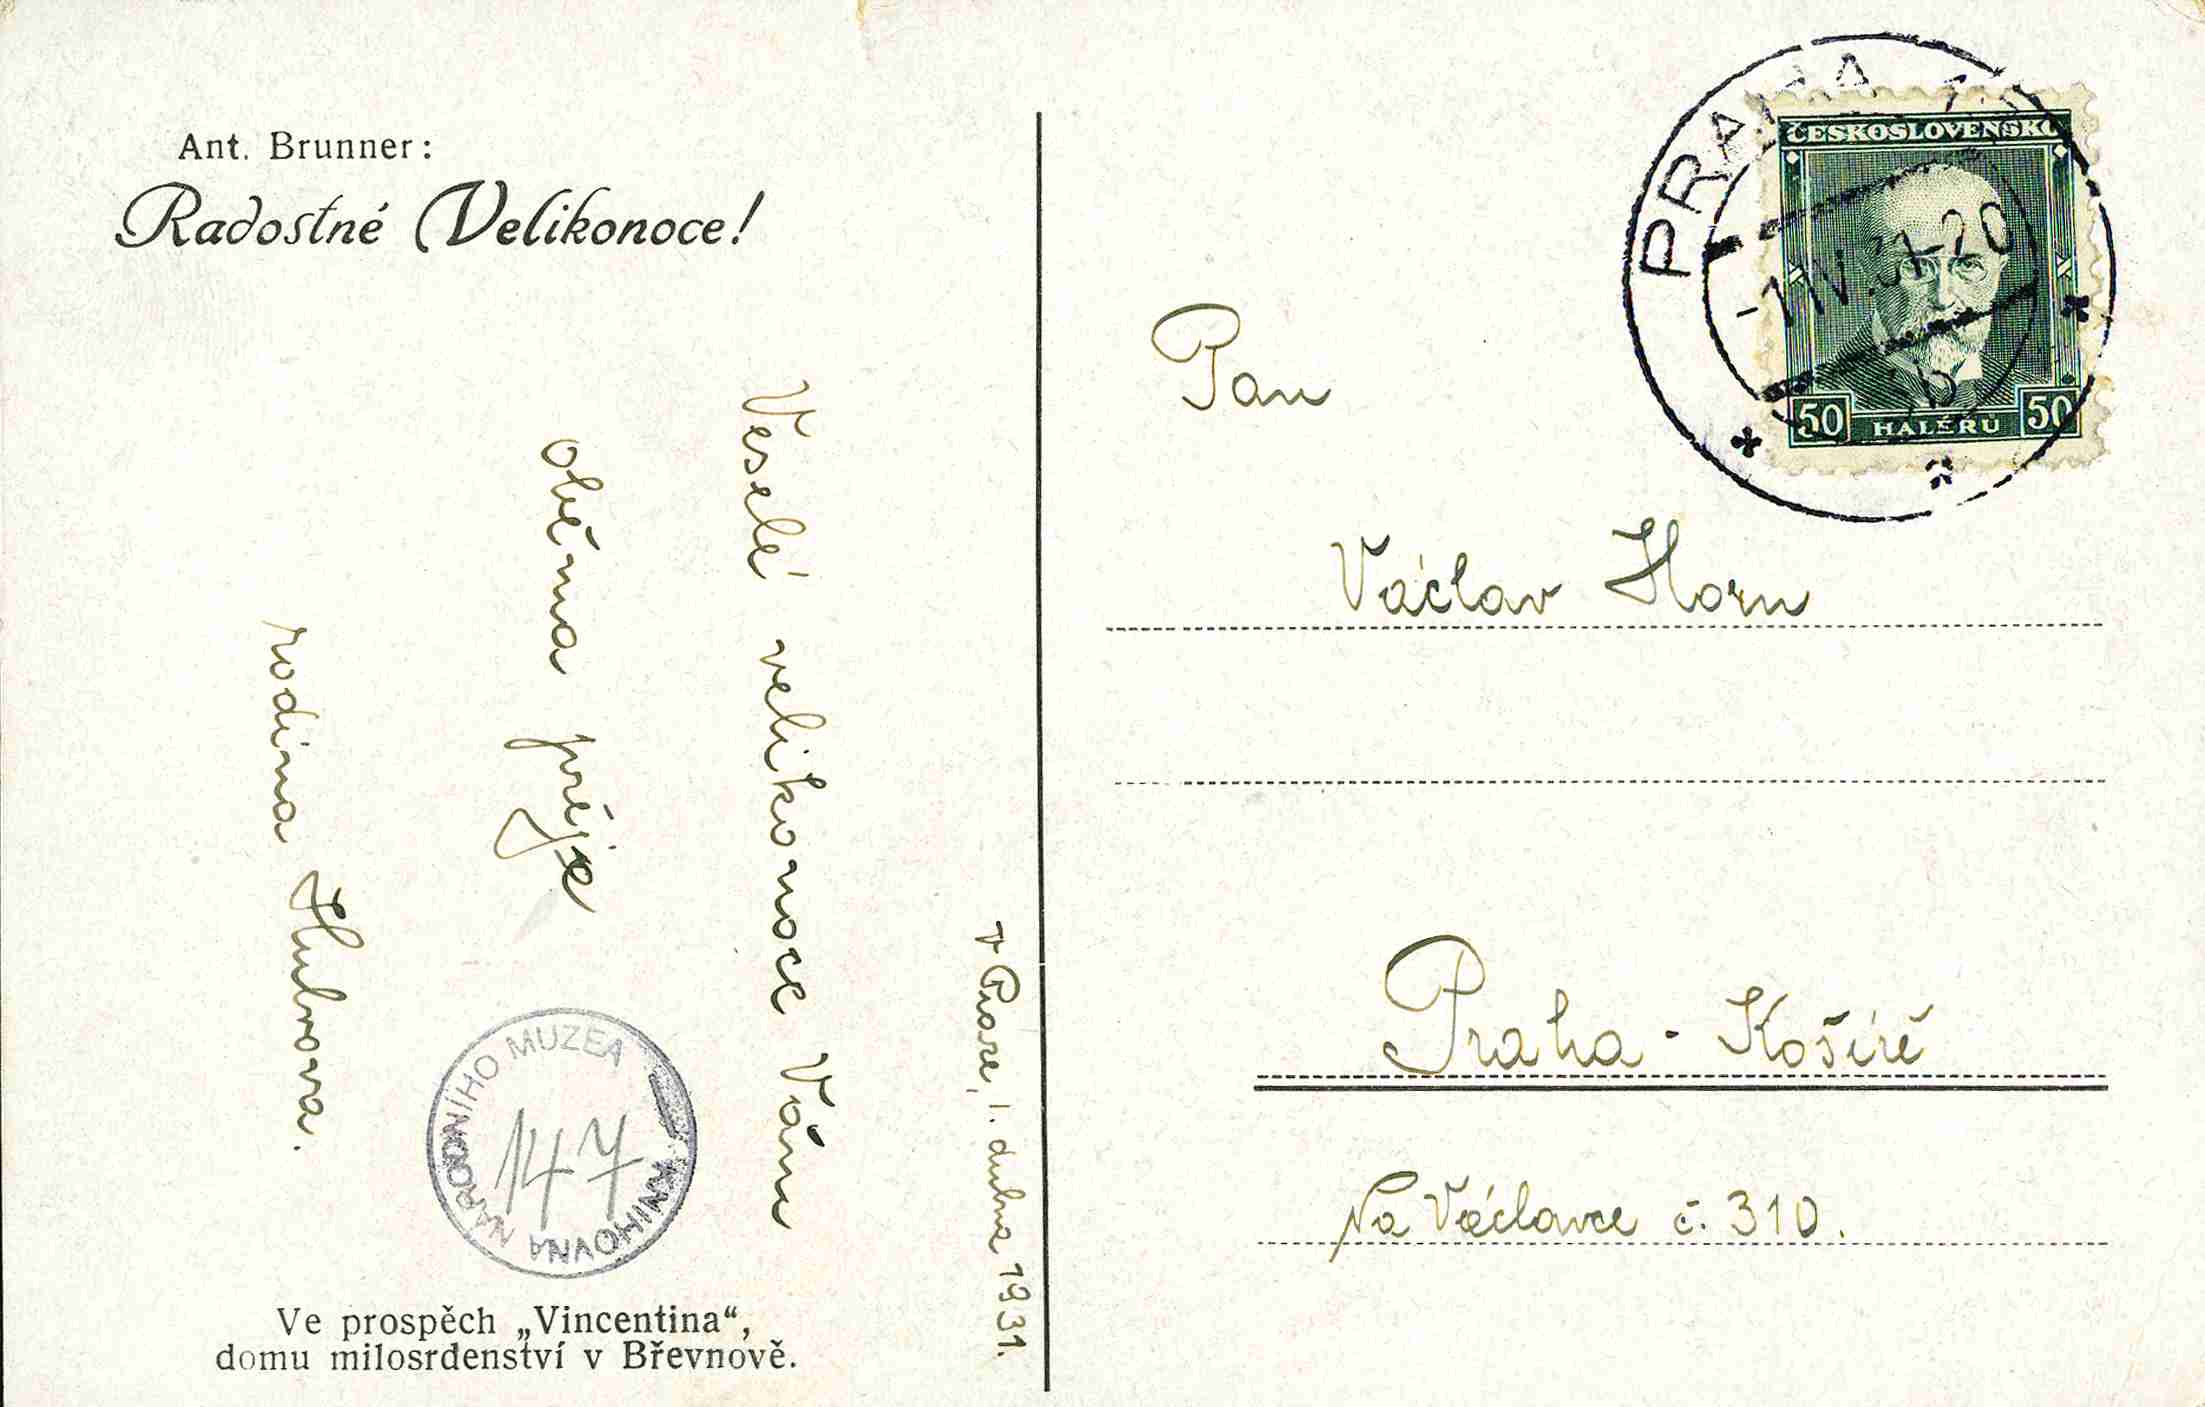 Ant. Brunner:
Radostné Velikonoce!
Veselé velikonoce Vám
oběma přeje
rodina Hubrova.
v Praze, 1. dubna 1931.
NÁRODNÍHO MUZEA
KNIHOVNA
147
Ve prospěch „Vincentina“,
domu milosrdenství v Břevnově.
PRAHA
-1.IV.31-20
ČESKOSLOVENSKO
50 HALÉŘŮ 50
Pan
Václav Horn
Praha - Košíře
Na Václavce č. 310.